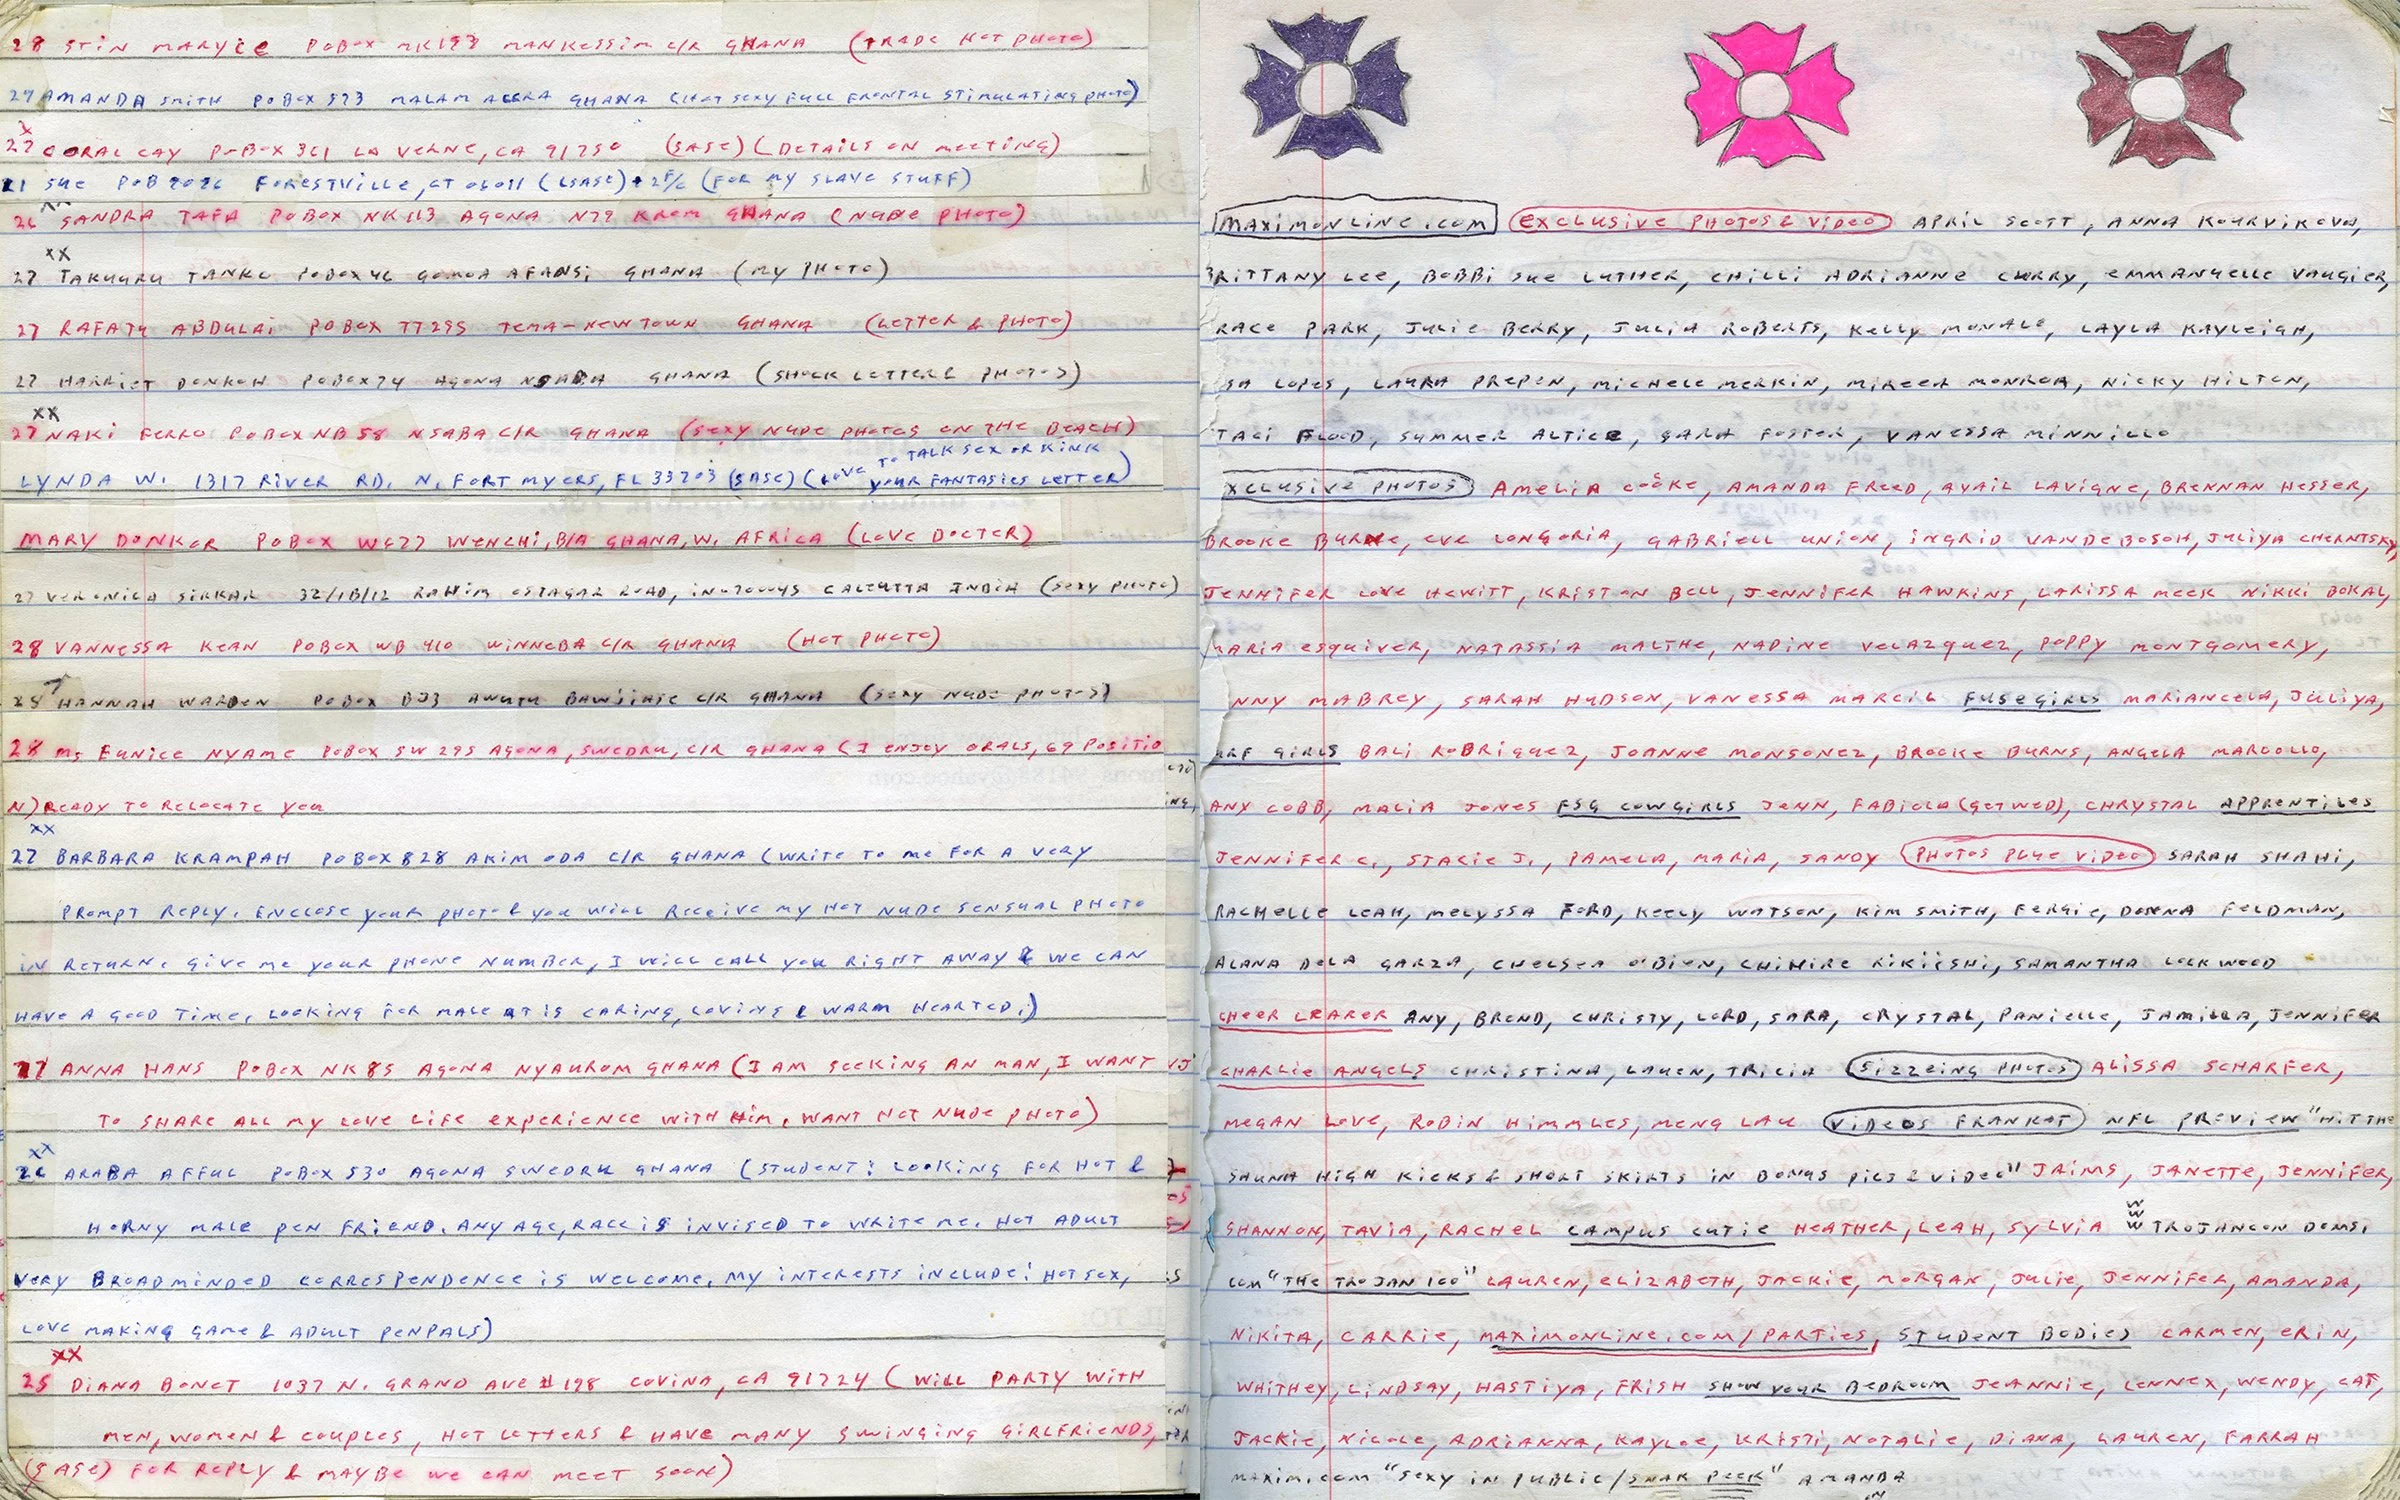 28 STIN MARYICE POBOX MK197 MANKESSIM C/R GHANA (TRADE HOT PHOTO)
27 AMANDA SMITH POBOX 573 MALAM ACCRA GHANA (HOT SEXY FULL FRONTAL STIMULATING PHOTO)
X
27 CORAL CAY POBOX 361 LA VERNE, CA 91750 (SASE) (DETAILS ON MEETING)
21 SUE POB 7026 FORESTVILLE, CT 06011 (LSASE) + 2F/C (FOR MY SLAVE STUFF)
XX
26 SANDRA TAFA POBOX NK113 AGONA N77 KROM GHANA (NUDE PHOTO)
XX
27 TAKUURU TANKO POBOX 46 GOMOA AFANSI GHANA (MY PHOTO)
27 RAFATU ABDULAI POBOX TT295 TEMA-NEWTOWN GHANA (LETTER & PHOTO)
27 HARRIET DONKOH POBOX 74 AGONA NSABA GHANA (SHOCK LETTER & PHOTOS)
XX
27 NAKI FERRO POBOX NB 58 NSABA C/R GHANA (SEXY NUDE PHOTOS ON THE BEACH)
LYNDA W. 1317 RIVER RD. N. FORT MYERS, FL 33903 (SASE) (LOVE TO TALK SEX OR KINK
YOUR FANTASIES LETTER)
MARY DONKOR POBOX WC77 WENCHI, B/A GHANA, W. AFRICA (LOVE DOCTER)
27 VERONICA SIRKAR 32/1B/12 RAHIM OSTAGAR ROAD, IN-700045 CALCUTTA INDIA (SEXY PHOTO)
28 VANNESSA KEAN POBOX WB 410 WINNEBA C/R GHANA (HOT PHOTO)
28 HANNAH WARDEN POBOX B33 AWUTU BAWJIATE C/R GHANA (SEXY NUDE PHOTOS)
28 MS EUNICE NYAME POBOX SW 295 AGONA, SWEDRU, C/R GHANA (I ENJOY ORALS, 69 POSITIO
N) READY TO RELOCATE YOU
XX
27 BARBARA KRAMPAH POBOX 828 AKIM ODA C/R GHANA (WRITE TO ME FOR A VERY
PROMPT REPLY. ENCLOSE YOUR PHOTO & YOU WILL RECEIVE MY HOT NUDE SENSUAL PHOTO
IN RETURN. GIVE ME YOUR PHONE NUMBER, I WILL CALL YOU RIGHT AWAY & WE CAN
HAVE A GOOD TIME, LOOKING FOR MALE AT IS CARING, LOVING & WARM HEARTED.)
27 ANNA HANS POBOX NK85 AGONA NYAUROM GHANA (I AM SEEKING AN MAN, I WANT
TO SHARE ALL MY LOVE LIFE EXPERIENCE WITH HIM, WANT HOT NUDE PHOTO)
XX
26 ARABA AFFUL POBOX 530 AGONA SWEDRU GHANA (STUDENT: LOOKING FOR HOT &
HORNY MALE PEN FRIEND. ANY AGE, RACE IS INVISED TO WRITE ME. HOT ADULT
VERY BROADMINDED CORRESPENDENCE IS WELCOME, MY INTERESTS INCLUDE: HOT SEX,
LOVE MAKING GAME & ADULT PENPALS)
XX
25 DIANA BONET 1037 N. GRAND AVE #198 COVINA, CA 91724 (WILL PARTY WITH
MEN, WOMEN & COUPLES, HOT LETTERS & HAVE MANY SWINGING GIRLFRIENDS,
(SASE) FOR REPLY & MAYBE WE CAN MEET SOON)
MAXIMONLINE.COM EXCLUSIVE PHOTOS & VIDEO APRIL SCOTT, ANNA KOURVIKOVA,
BRITTANY LEE, BOBBI SUE LUTHER, CHILLI ADRIANNE CURRY, EMMANUELLE VAUGIER,
RACE PARK, JULIE BERRY, JULIA ROBERTS, KELLY MONALO, LAYLA KAYLEIGH,
SA LOPES, LAURA PREPEN, MICHELE MERKIN, MIREER MONROA, NICKY HILTON,
TACI FLOOD, SUMMER ALTICE, SARA FOSTER, VANESSA MINNILLO
XCLUSIVE PHOTOS AMELIA COOKE, AMANDA FREED, AVAIL LAVIGNE, BRENNAN HESSER,
BROOKE BURKE, EVE LONGORIA, GABRIELL UNION, INGRID VANDEBOSOH, JULIYA CHERNTSKY,
JENNIFER LOVE HEWITT, KRISTON BELL, JENNIFER HAWKINS, LARISSA MEEK NIKKI BOKAL,
MARIA ESQUIVER, NATASSIA MALTHE, NADINE VELAZQUEZ, POPPY MONTGOMERY,
NNY MABREY, SARAH HUDSON, VANESSA MARCIL FUSEGIRLS MARIANCELA, JULIYA,
URF GIRLS BALI RODRIGUEZ, JOANNE MONSONEZ, BROOKE BURNS, ANGELA MARCOLLO,
ANY COBB, MALIA JONES FSG COWGIRLS JENN, FABIOLA (GETWED), CHRYSTAL APPRENTICES
JENNIFER C., STACIE J., PAMELA, MARIA, SANDY PHOTOS PLUE VIDEO SARAH SHAHI,
RACHELLE LEAH, MELYSSA FORD, KEELY WATSON, KIM SMITH, FERGIE, DONNA FELDMAN,
ALANA DELA GARZA, CHELSEA O'BION, CHIHIRE KIKIISHI, SAMANTHA LOCKWOOD
CHEER LEARER ANY, BREND, CHRISTY, LORD, SARA, CRYSTAL, PANIELLE, JAMILLA, JENNIFER
CHARLIE ANGELS CHRISTINA, LAUEN, TRICIA SIZZEING PHOTOS ALISSA SCHARFER,
MEGAN LOVE, ROBIN HIMMLES, MENG LAU VIDEOS FRANKOT NFL PREVIEW "HIT THE
SAUNA HIGH KICKS & SHORT SKIRTS IN BONUS PICS & VIDEO" JAIMS, JANETTE, JENNIFER,
SHANNON, TAVIA, RACHEL CAMPUS CUTIE HEATHER, LEAH, SYLVIA WWW TROJANCON DOMS.
COM "THE TROJAN 100" LAUREN, ELIZABETH, JACKIE, MORGAN, JULIE, JENNIFER, AMANDA,
NIKITA, CARRIE, MAXIMONLINE.COM/PARTIES, STUDENT BODIES CARMEN, ERIN,
WHITHEY, LINDSAY, HASTIYA, FRISH SHOW YOUR BEDROOM JEANNIE, LENNEX, WENDY, CAT,
JACKIE, NICOLE, ADRIANNA, KAYLOE, KRISTI, NOTALIE, DIANA, LAUREN, FARRAH
MAXIM.COM "SEXY IN PUBLIC/SNAK PEEK" AMANDA